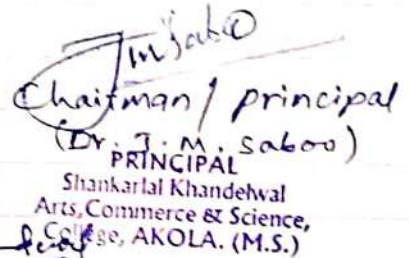 Chairman / principal
(Dr. J. M. Saboo)
PRINCIPAL
Shankarlal Khandelwal
Arts, Commerce & Science,
College, AKOLA. (M.S.)